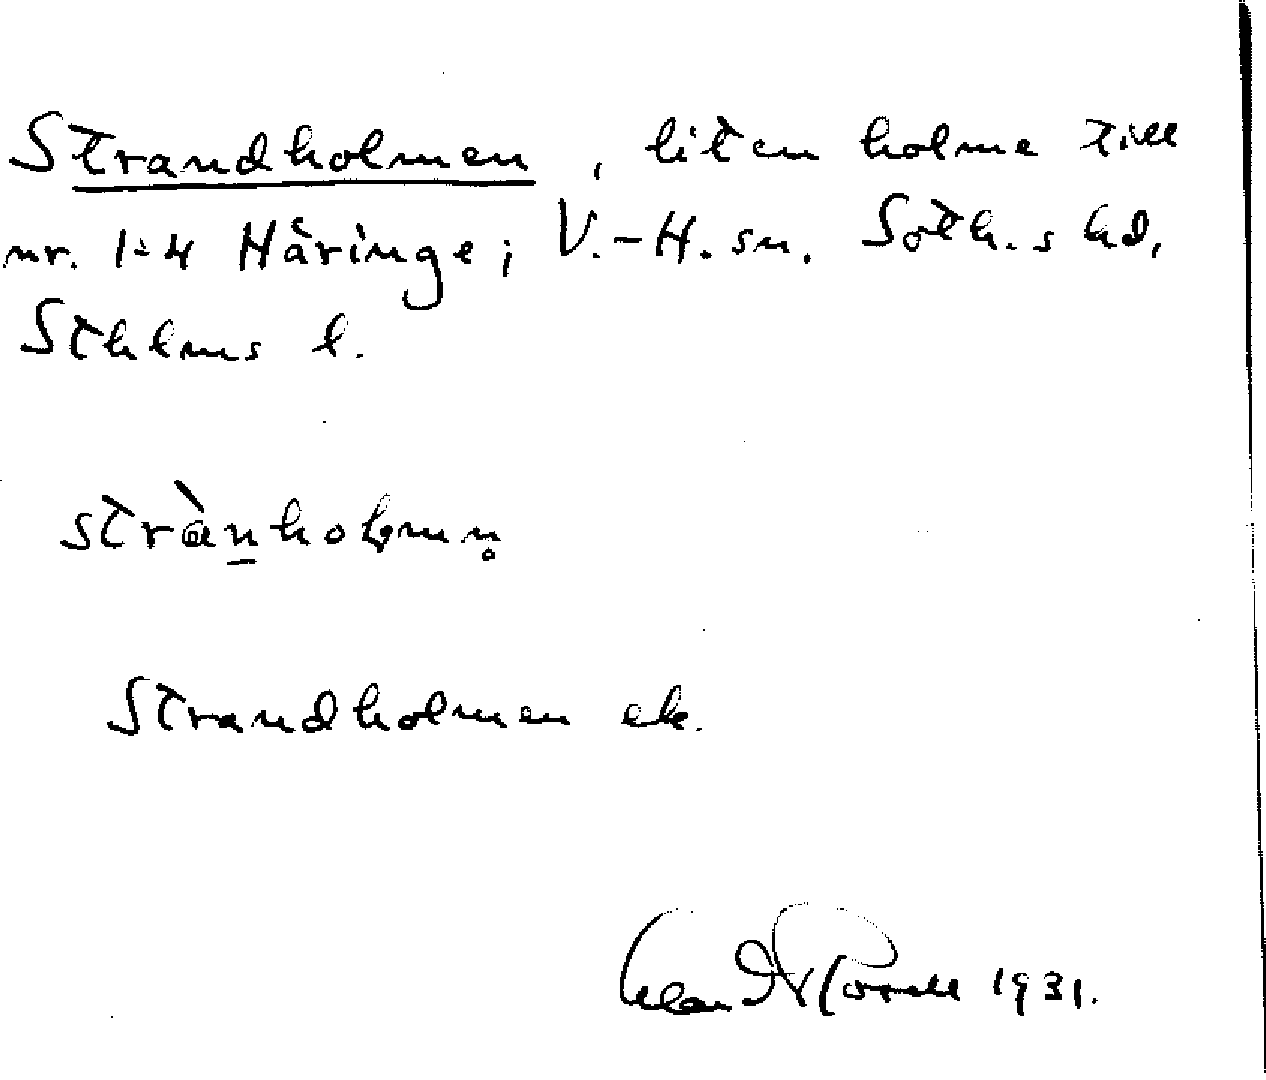 Strandholmen, liten holme till
nr. 1-4 Häringe; V.-H. sn. Soth.s hd,
Sthlms l.
strànholmn̥
Strandholmen ek.
1931.